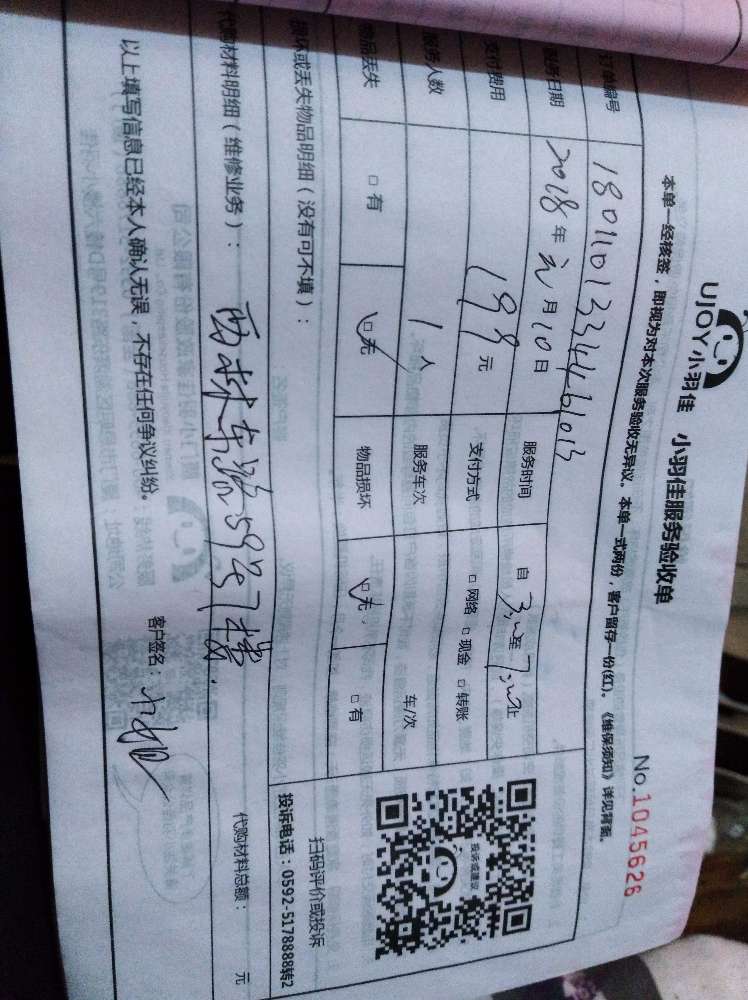 UJOY小羽佳 小羽佳服务验收单
No.1045626
本单一经核签，即视为对本次服务验收无异议。本单一式两份，客户留存一份(红)。《维保须知》详见背面。
订单编号
服务日期 2018年 元月10日 服务时间 自 3:00至 7:00止
支付费用 199元 支付方式 □ 网络 □ 现金 □ 转账
服务人数 1人 服务车次 车/次
物品丢失 □ 有 □ 无 物品损坏 □ 无 □ 有
损坏或丢失物品明细（没有可不填）：
扫码评价或投诉
投诉或建议
投诉电话：0592-5178888转2
代购材料明细（维修业务）： 代购材料总额： 元
以上填写信息已经本人确认无误，不存在任何争议纠纷。
客户签名：